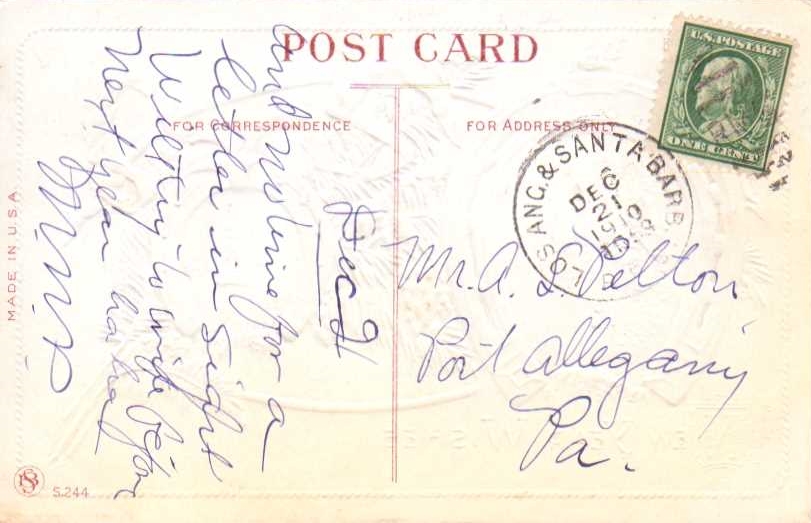 POST CARD
FOR CORRESPONDENCE
FOR ADDRESS ONLY
U.S. POSTAGE
ONE CENT
LOS ANG. & SANTA BARB
DEC
21
1910
Dec 21
and no time for a
letter in sight
Will try to write before
next year ha ha
Mr. A. L. Pelton
Port Allegany
Pa.
MADE IN U.S.A.
S.244